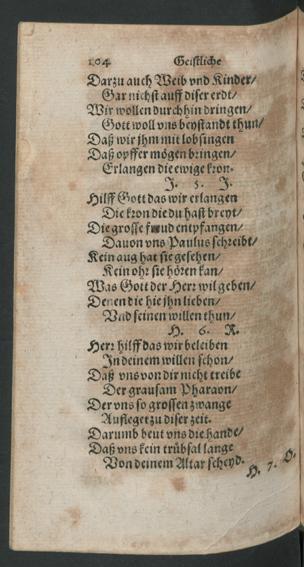 104 Geistliche
Darzu auch Weib vnd Kinder/
Gar nichst auff diser erdt/
Wir wollen durchhin dringen/
Gott woll vns beystandt thun/
Daß wir jhm mit lobsingen
Daß opffer mögen bringen/
Erlangen die ewige kron.
J. 5. J.
Hilff Gott das wir erlangen
Die kron die du hast breyt/
Die grosse freud entpfangen/
Dauon vns Paulus schreibt/
Kein aug hat sie gesehen/
Kein ohr sie hören kan/
Was Gott der Herr wil geben/
Denen die hie jhn lieben/
Vnd seinen willen thun/
H. 6. R.
Herr hilff das wir beleiben
In deinem willen schon/
Daß vns von dir nicht treibe
Der grausam Pharaon/
Der vns so grossen zwange
Aufleget zu diser zeit.
Darumb beut vns die hande/
Daß vns kein trübsal lange
Von deinem Altar scheyd.
H. 7. H.